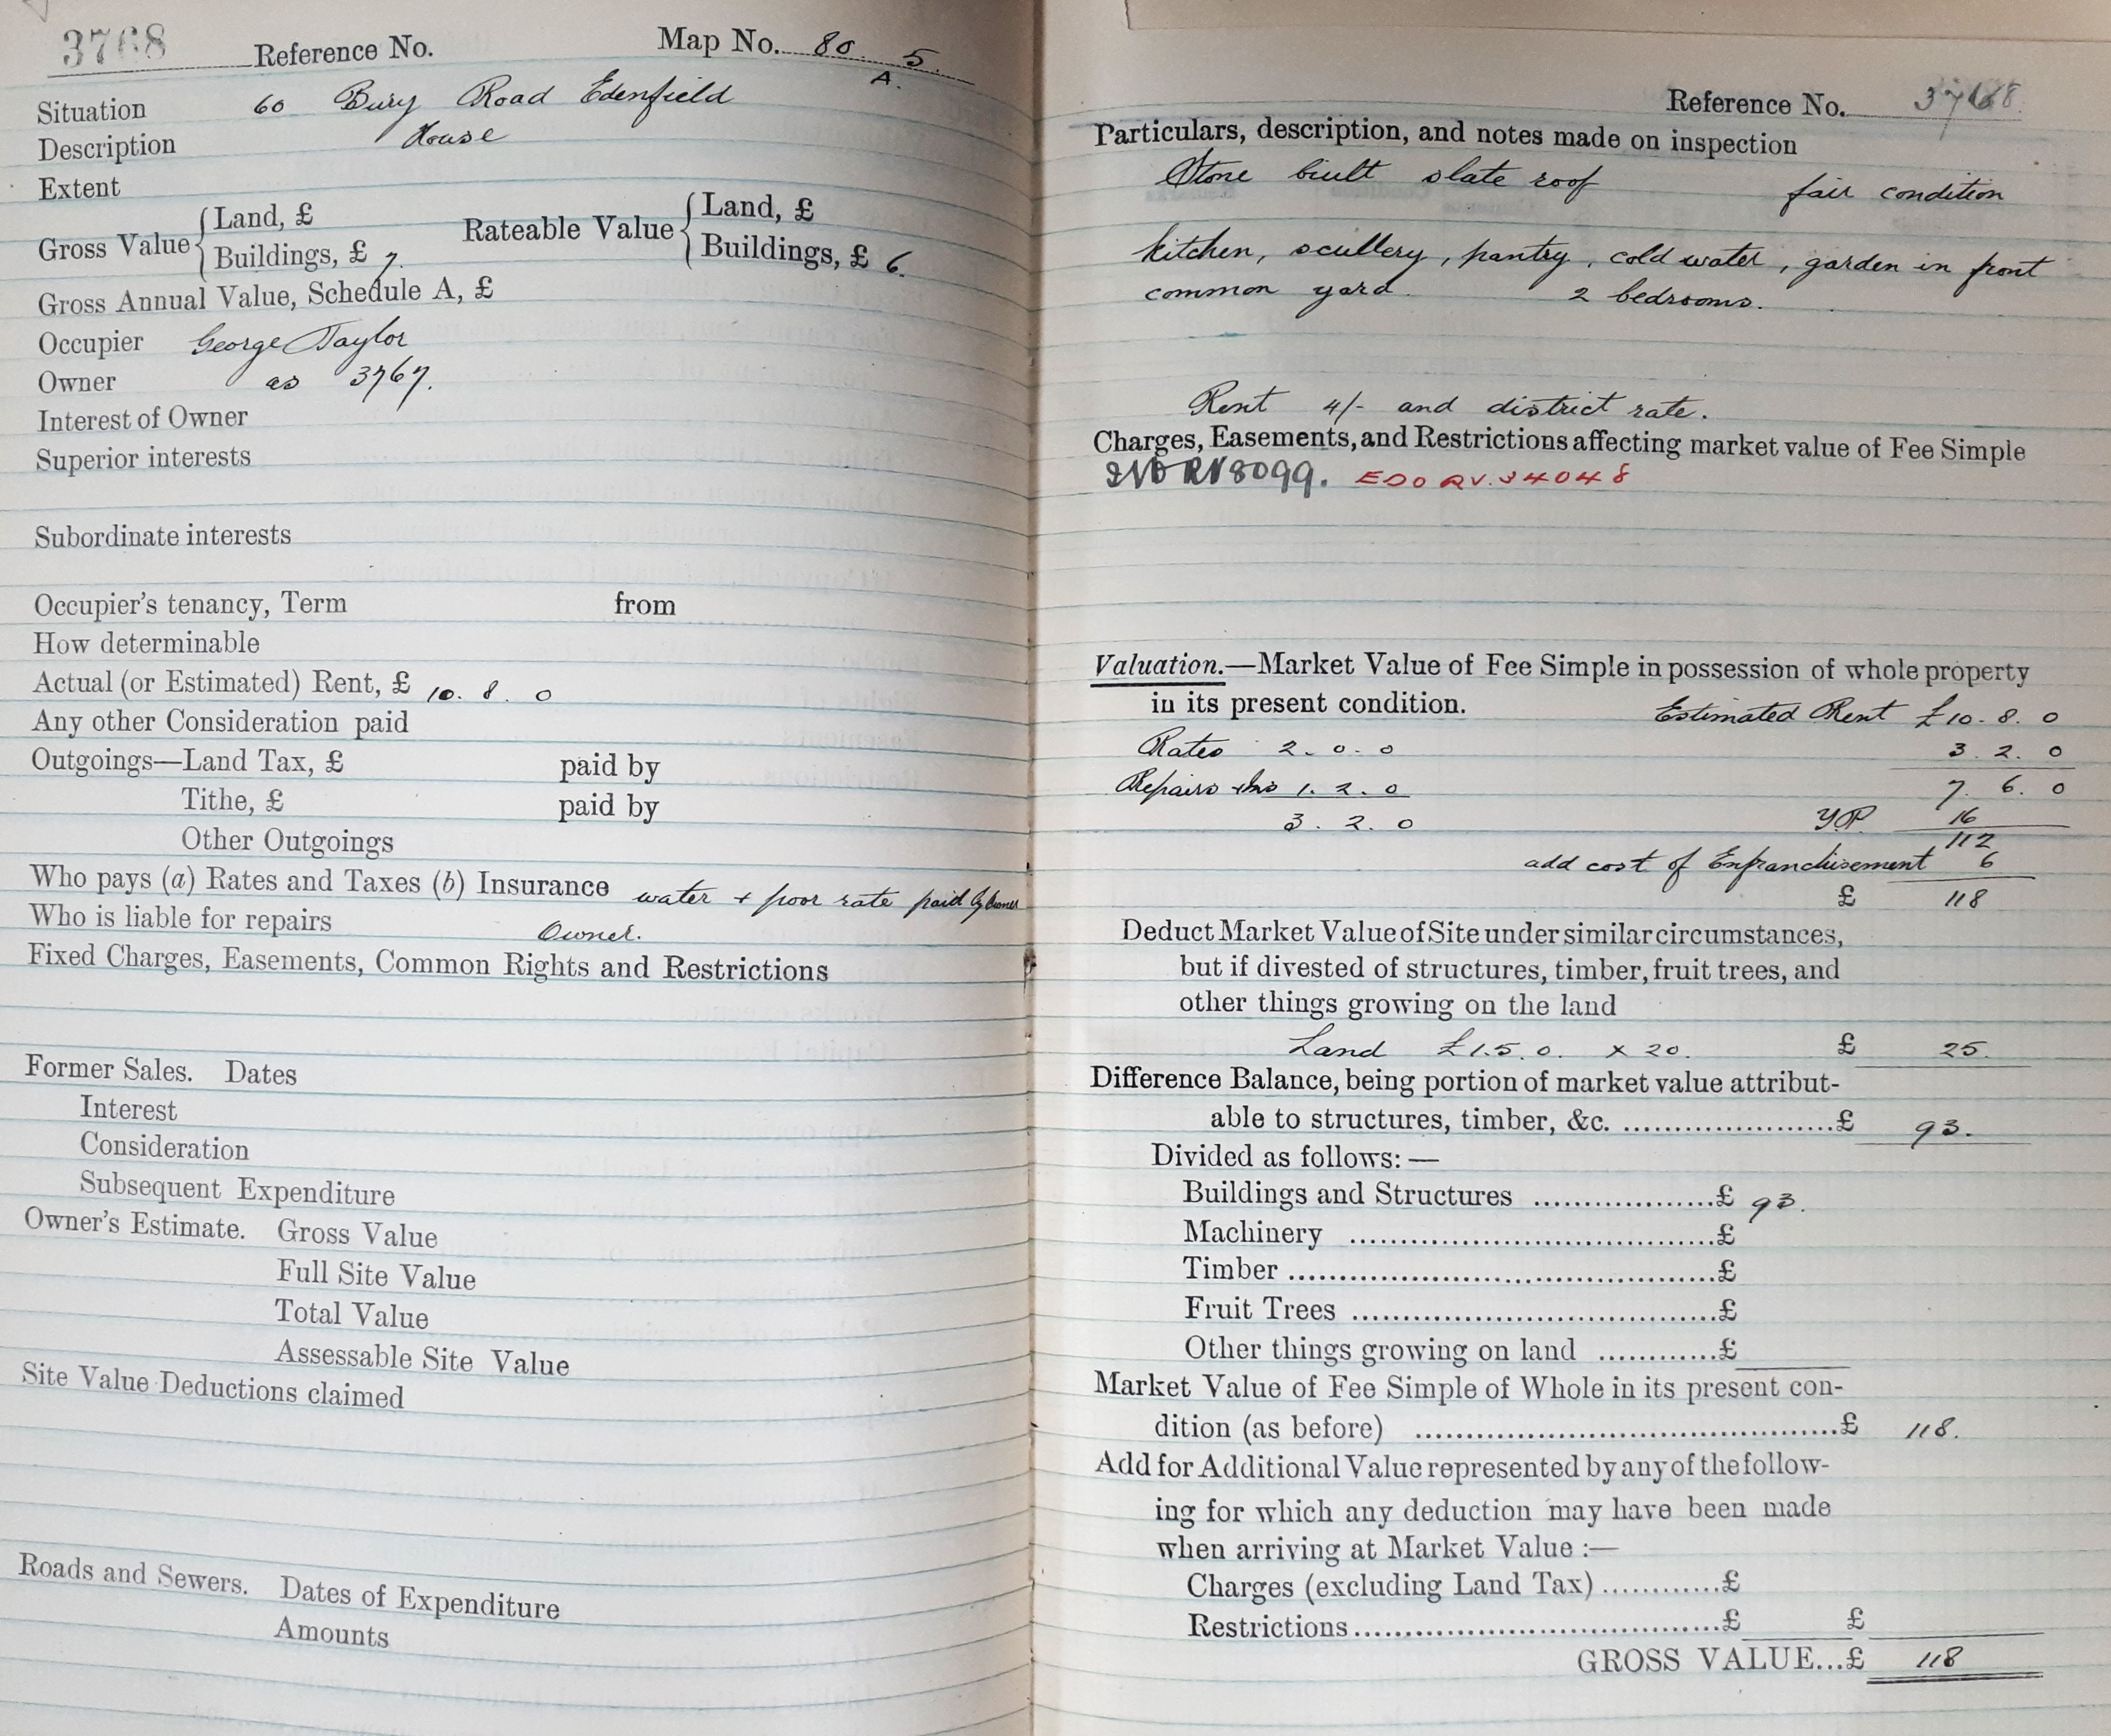 3768 Reference No. Map No. 80 5
A.
Situation 60 Bury Road Edenfield
Description House
Extent
Gross Value { Land, £
Buildings, £ 7.
Rateable Value { Land, £
Buildings, £ 6.
Gross Annual Value, Schedule A, £
Occupier George Taylor
Owner as 3767.
Interest of Owner
Superior interests
Subordinate interests
Occupier's tenancy, Term from
How determinable
Actual (or Estimated) Rent, £ 10. 8. 0
Any other Consideration paid
Outgoings—Land Tax, £ paid by
Tithe, £ paid by
Other Outgoings
Who pays (a) Rates and Taxes (b) Insurance water + poor rate paid by Owner
Who is liable for repairs Owner.
Fixed Charges, Easements, Common Rights and Restrictions
Former Sales. Dates
Interest
Consideration
Subsequent Expenditure
Owner's Estimate. Gross Value
Full Site Value
Total Value
Assessable Site Value
Site Value Deductions claimed
Roads and Sewers. Dates of Expenditure
Amounts
Reference No. 3768.
Particulars, description, and notes made on inspection
Stone built slate roof fair condition
kitchen, scullery, pantry, cold water, garden in front
common yard. 2 bedrooms.
Rent 4/- and district rate.
Charges, Easements, and Restrictions affecting market value of Fee Simple
8099. EDO RV. 34048
Valuation.—Market Value of Fee Simple in possession of whole property
in its present condition. Estimated Rent £10. 8. 0
Rates 2. 0. 0 3. 2. 0
Repairs 1. 2. 0 7. 6. 0
3. 2. 0 Y.P. 16
112
add cost of Enfranchisement 6
£ 118
Deduct Market Value of Site under similar circumstances,
but if divested of structures, timber, fruit trees, and
other things growing on the land
Land £1.5.0. x 20. £ 25.
Difference Balance, being portion of market value attribut-
able to structures, timber, &c. ....................£ 93.
Divided as follows:—
Buildings and Structures ..................£ 93.
Machinery ....................................£
Timber ..........................................£
Fruit Trees ....................................£
Other things growing on land ............£
Market Value of Fee Simple of Whole in its present con-
dition (as before) ..........................................£ 118.
Add for Additional Value represented by any of the follow-
ing for which any deduction may have been made
when arriving at Market Value :—
Charges (excluding Land Tax) ............£
Restrictions....................................£ £
GROSS VALUE...£ 118